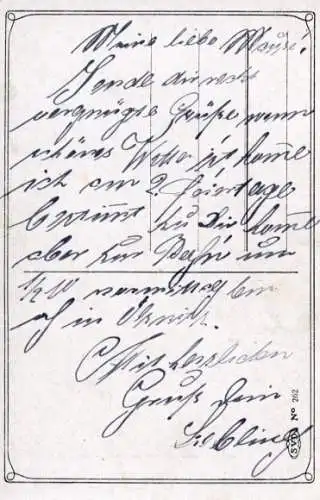 Meine liebe Mouse!
Sende dir recht
vergnügte Grüße wenn
schönes Wetter ist komme
ich am 2. Feiertage
bestimmt zu Dir komme
aber zur Bahn um
1/2 10 vormittag bin
ich in
Mit herzlichen
Gruß Dein
Liebling
SVD No 262